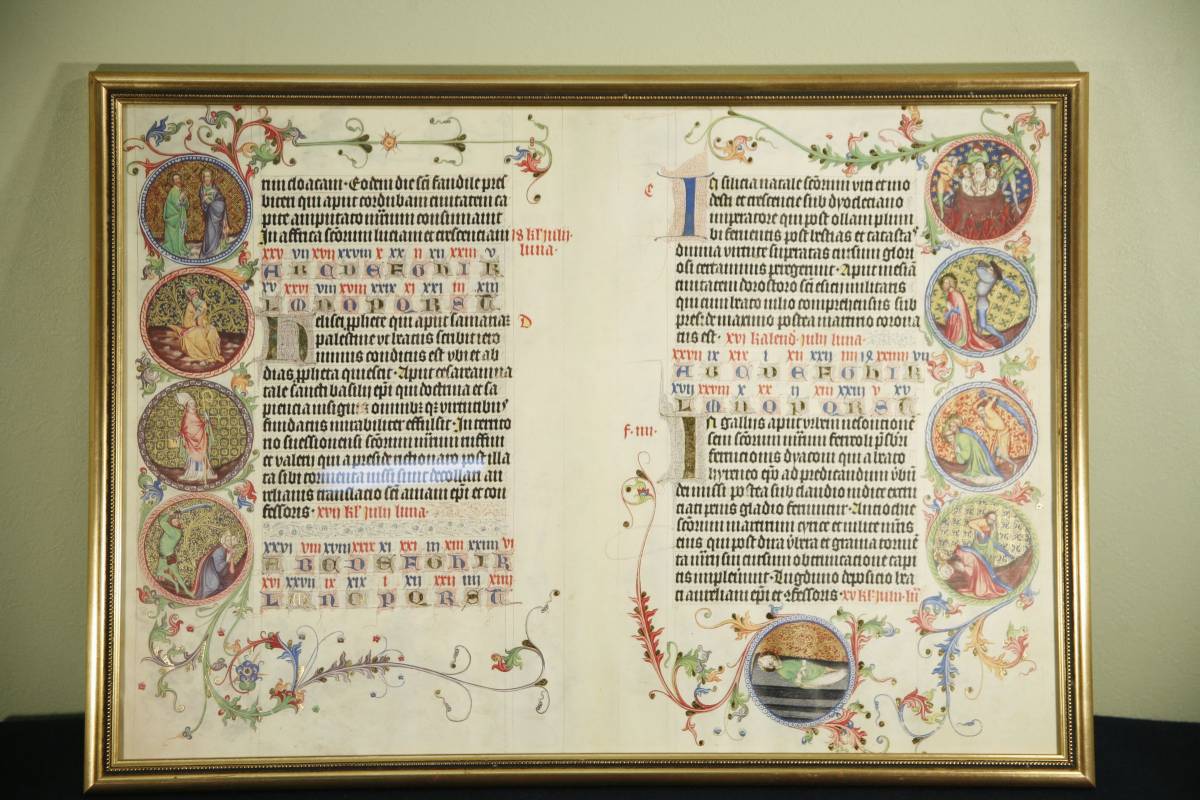 mm cloacam · Eodem die sci fandile pres
biteri qui aput cordubam ciuitatem ca
pite amputato mrium consumauit
In affrica scorum luciani et crescenciani 18 kl' iulij ·
luna ·
xxv vi xvii xxviii x xx ii xii xxiii v
A B C D E F G H I K
xv xxvi viii xviii xxix xi xxi iii xiii
L M N O P Q R S T
D
Helisei pphete qui aput samariam
palestine vt beatus scribit iero
nimus conditus est vbi et ab
dias ppheta quiescit · Aput cesaream na
tale sancti basilij epi qui doctrina et sa
piencia insignis omnibus qz virtutibus
fundatus mirabiliter effulsit · In territo
rio suessionensi scorum mrium ruffini
et valerij qui a preside richouaro post illa
ta sibi tormenta iussi sunt decollari au
relianis translacio sci auiani epi et con
fessoris · xvij kl' iulij luna ·
xxvi viii xviii xxix xi xxi iii xiii xxiiii vi
A B C D E F G H I K
xvi xxvii ix xix i xii xxii iiii xiiii
L M N O P Q R S T
e
In silicia natale scorum viti et mo
desti et crescencie sub dyocleciano
imperatore qui post ollam plumbi
bi feruentis post bestias et catastas
diuina virtute superatas cursum glori
osi certaminis peregerunt · Aput mesiam
ciuitatem dorostoro sci esicij militaris
qui cum beato iulio comprehensus sub
preside maximo postea martirio corona
tus est · xvi kalend' iulij luna ·
xxvii ix xix i xii xxii iiii 18 xxiiiii vii
A B C D E F G H I K
xvii xxviii x xx ii xiii xxiii v xv
L M N O P Q R S T
f · iiii ·
In gallijs aput vrbem vesoncione
sem scorum mrium ferreoli psbri
ferrucionis dyaconi qui a beato
hyreneo epo ad predicandum vbum
dei missi postea sub claudio iudice exeru
ciati prius gladio feriuntur · Antiochie
scorum martirum cyrice et iulite mris
eius qui post dira vbera et grauia torme
ta mrij sui cursum obtruncacione capi
tis impleuerunt · Lugduno deposicio bea
ti aureliani epi et 9fessoris · xv kl' iulij lu